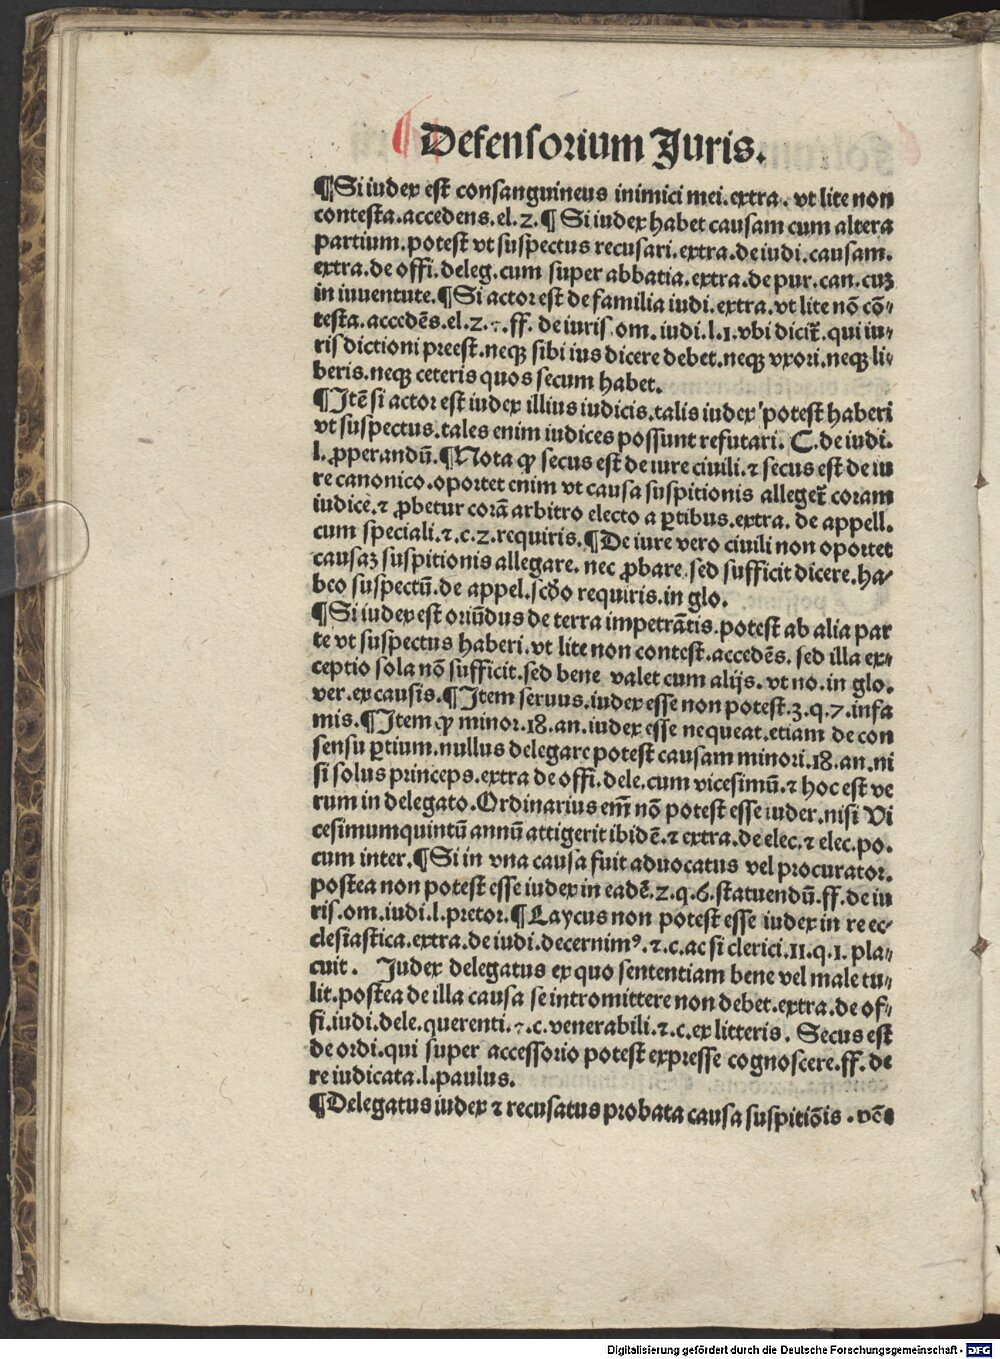 Defensorium Juris.
¶Si iudex est consanguineus inimici mei.extra. vt lite non
contesta.accedens.el.2.¶ Si iudex habet causam cum altera
partium.potest vt suspectus recusari.extra.de iudi.causam.
extra.de offi.deleg.cum super abbatia.extra.de pur.can.cuʒ
in iuuentute.¶Si actor est de familia iudi.extra.vt lite nō cō⸗
testa.accedēs.el.2.⁊.ff. de iuris om. iudi.l.1.vbi dicit̄. qui iu⸗
risdictioni preest.neqꝫ sibi ius dicere debet.neqꝫ vxori.neqꝫ li⸗
beris.neqꝫ ceteris quos secum habet.
¶Itē si actor est iudex illius iudicis.talis iudex potest haberi
vt suspectus.tales enim iudices possunt refutari. C.de iudi.
l.ꝓperandū.¶Nota ꝙ secus est de iure ciuili.⁊ secus est de iu
re canonico.oportet enim vt causa suspitionis alleget̄ coram
iudice.⁊ ꝓbetur corā arbitro electo a ꝑtibus.extra. de appell.
cum speciali.⁊.c.2.requiris.¶De iure vero ciuili non oportet
causaʒ suspitionis allegare. nec ꝓbare.sed sufficit dicere.ha⸗
beo suspectū.de appel.scḋo requiris.in glo.
¶Si iudex est oriūdus de terra impetrātis.potest ab alia par
te vt suspectus haberi.vt lite non contest.accedēs. sed illa ex⸗
ceptio sola nō sufficit.sed bene valet cum alijs. vt no.in glo.
ver.ex causis.¶Item seruus.iudex esse non potest.3.q.7.infa
mis.¶Item ꝙ minor.18.an.iudex esse nequeat.etiam de con
sensu ꝑtium.nullus delegare potest causam minori.18.an.ni
si solus princeps.extra de offi.dele.cum vicesimū.⁊ hoc est ve
rum in delegato.Ordinarius em̄ nō potest esse iudex.nisi Vi
cesimumquintū annū attigerit ibidē.⁊ extra.de elec.⁊ elec.po.
cum inter.¶Si in vna causa fuit aduocatus vel procurator.
postea non potest esse iudex in eadē.2.q.6.statuendū.ff.de iu
ris.om.iudi.l.pretor.¶Laycus non potest esse iudex in re ec⸗
clesiastica.extra.de iudi.decernimꝰ.⁊.c.ac si clerici.11.q.1.pla⸗
cuit. Iudex delegatus ex quo sententiam bene vel male tu⸗
lit.postea de illa causa se intromittere non debet.extra.de of⸗
fi.iudi.dele.querenti.⁊.c.venerabili.⁊.c.ex litteris. Secus est
de ordi.qui super accessorio potest expresse cognoscere.ff.de
re iudicata.l.paulus.
¶Delegatus iudex ⁊ recusatus probata causa suspitiōis.
Digitalisierung gefördert durch die Deutsche Forschungsgemeinschaft - DFG